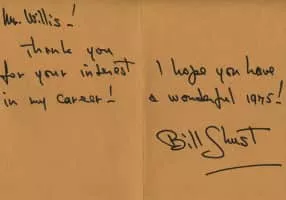 Mr. Willis!
Thank you
for your interest
in my career!
I hope you have
a wonderful 1975!
Bill Shust